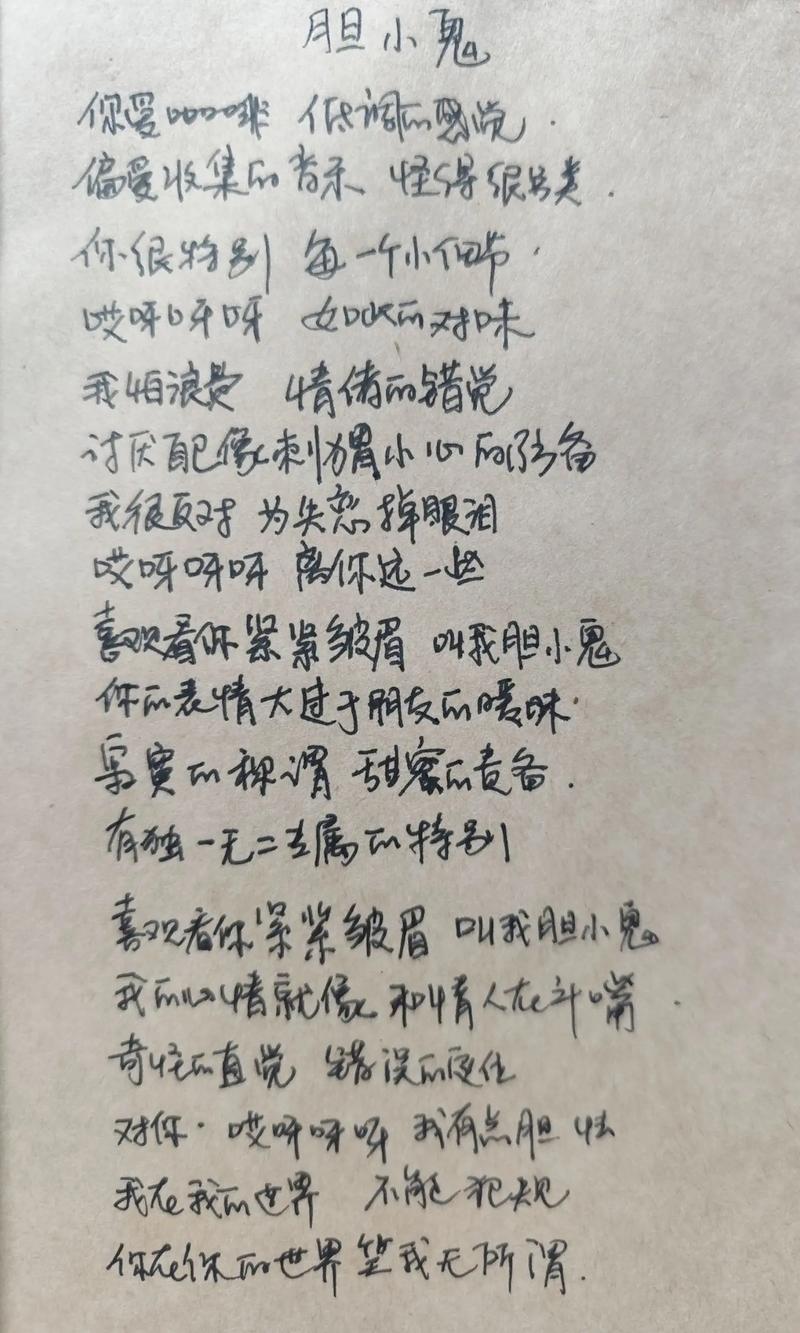 胆小鬼
你爱咖啡 低调的感觉.
偏爱收集的音乐、怪得很另类.
你很特别 每一个小细节.
哎呀呀呀 如此的对味
我怕浪费 情绪的错觉
讨厌自己像刺猬小心的防备
我很反对 为失恋掉眼泪
哎呀呀呀 离你远一些
喜欢看你紧紧皱眉 叫我胆小鬼
你的表情大过于朋友的暧昧.
寂寞的称谓 甜蜜的责备.
有独一无二专属的特别
喜欢看你紧紧皱眉 叫我胆小鬼
我的心情就像和情人在斗嘴.
奇怪的直觉 错误的定位
对你. 哎呀呀呀 我有点胆怯
我在我的世界 不能犯规
你在你的世界笑我无所谓.